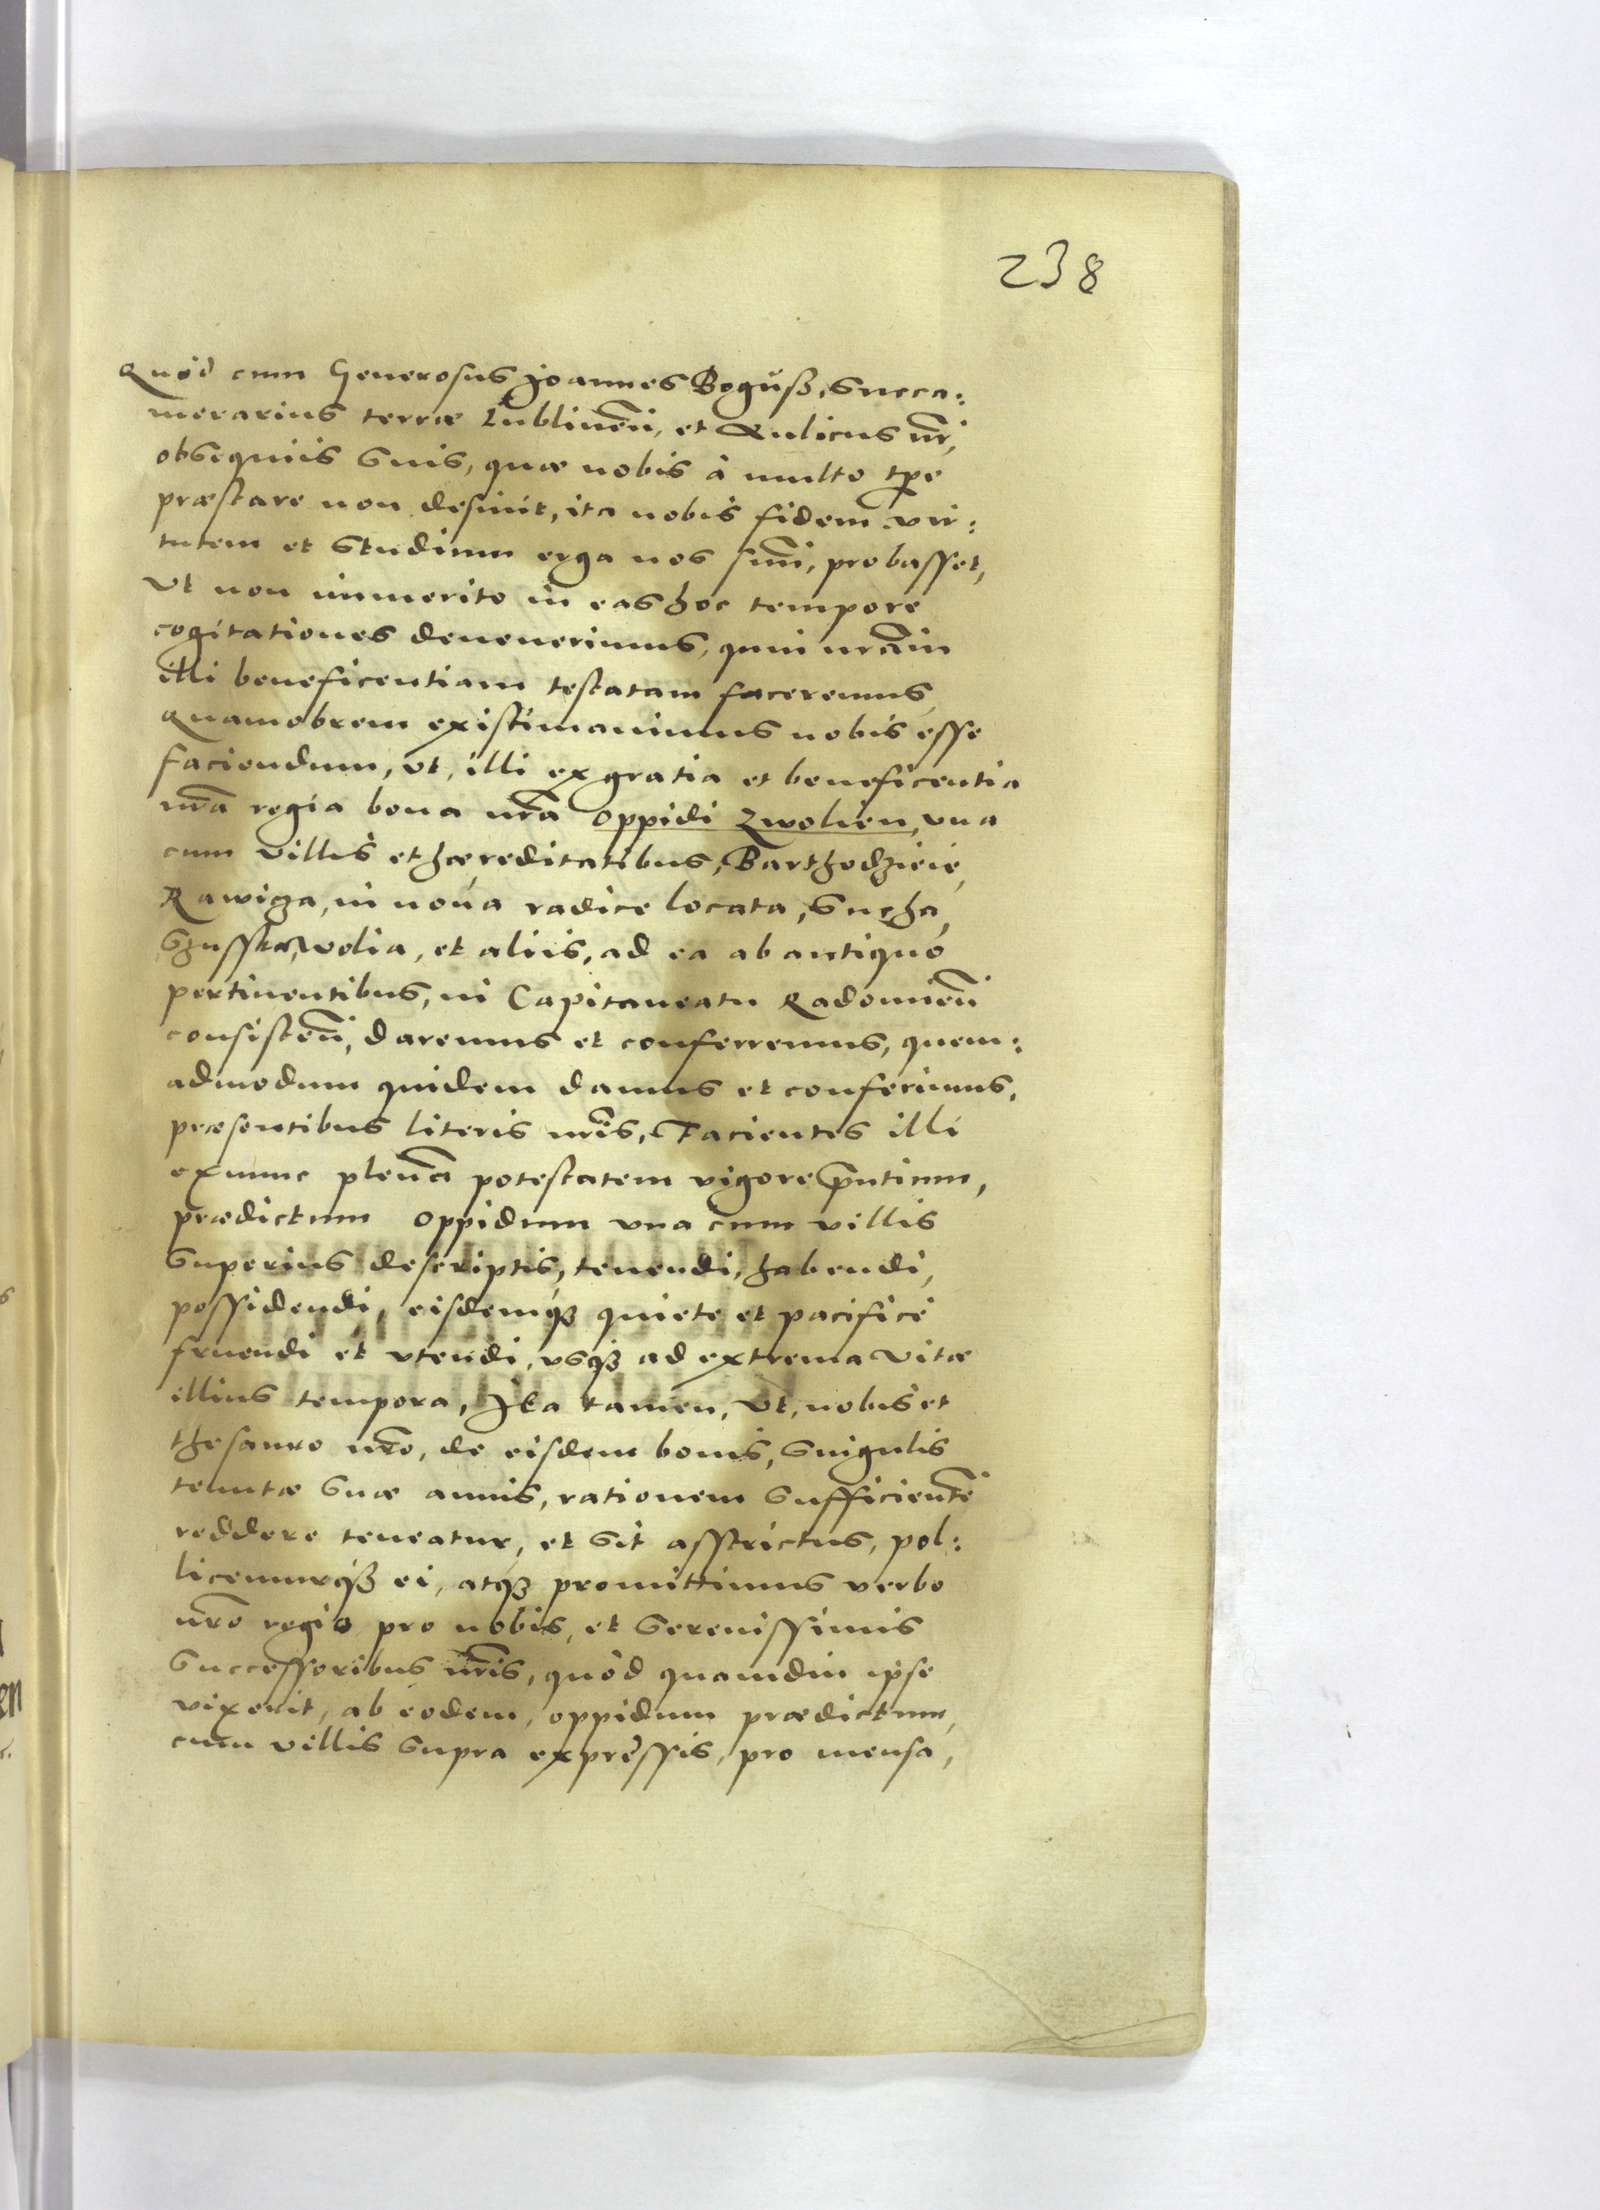 238
Quod cum Generosus Joannes Boguß, Succa:
merarius terræ Lublineñ, et Aulicus nr̃,
obsequiis suis, quæ nobis à multo tp̃e
præstare non desinit, ita nobis fidem vir:
tutem et studium erga nos suũ, probasset,
Vt non immerito in eas hoc tempore
cogitationes deuenerimus, quin nr̃am
illi beneficentiam testatam faceremus,
Quamobrem existimauimus nobis esse
faciendum, vt, illi ex gratia et beneficentia
nr̃a regia bona nr̃a oppidi Zwolien, vna
cum villis et hæreditatibus, Barthodzieie,
Rawicza, in noua radice locata, Sucha,
wolia, et aliis, ad ea ab antiquo
pertinentibus, in Capitaneatu Radomieñ
consisteñ, daremus et conferremus, quem:
admodum quidem damus et conferimus,
præsentibus literis nr̃is, Facientes illi
ex nunc plenã potestatem vigore p̃ntium,
prædictum oppidum vna cum villis
superius descriptis, tenendi, habendi,
possidendi, eisdemqȝ quiete et pacifice
fruendi et vtendi, vsqȝ ad extrema vitæ
illius tempora, Ita tamen, vt, nobis et
thesauro nr̃o, de eisdem bonis, singulis
tenutæ suæ annis, rationem sufficientẽ
reddere teneatur, et sit asstrictus, pol:
licemurqȝ ei, atqȝ promittimus verbo
nr̃o regio pro nobis, et Serenissimis
Successoribus nr̃is, quòd quamdiu ipse
vixerit, ab eodem, oppidum prædictum,
cum villis supra expressis, pro mensa,